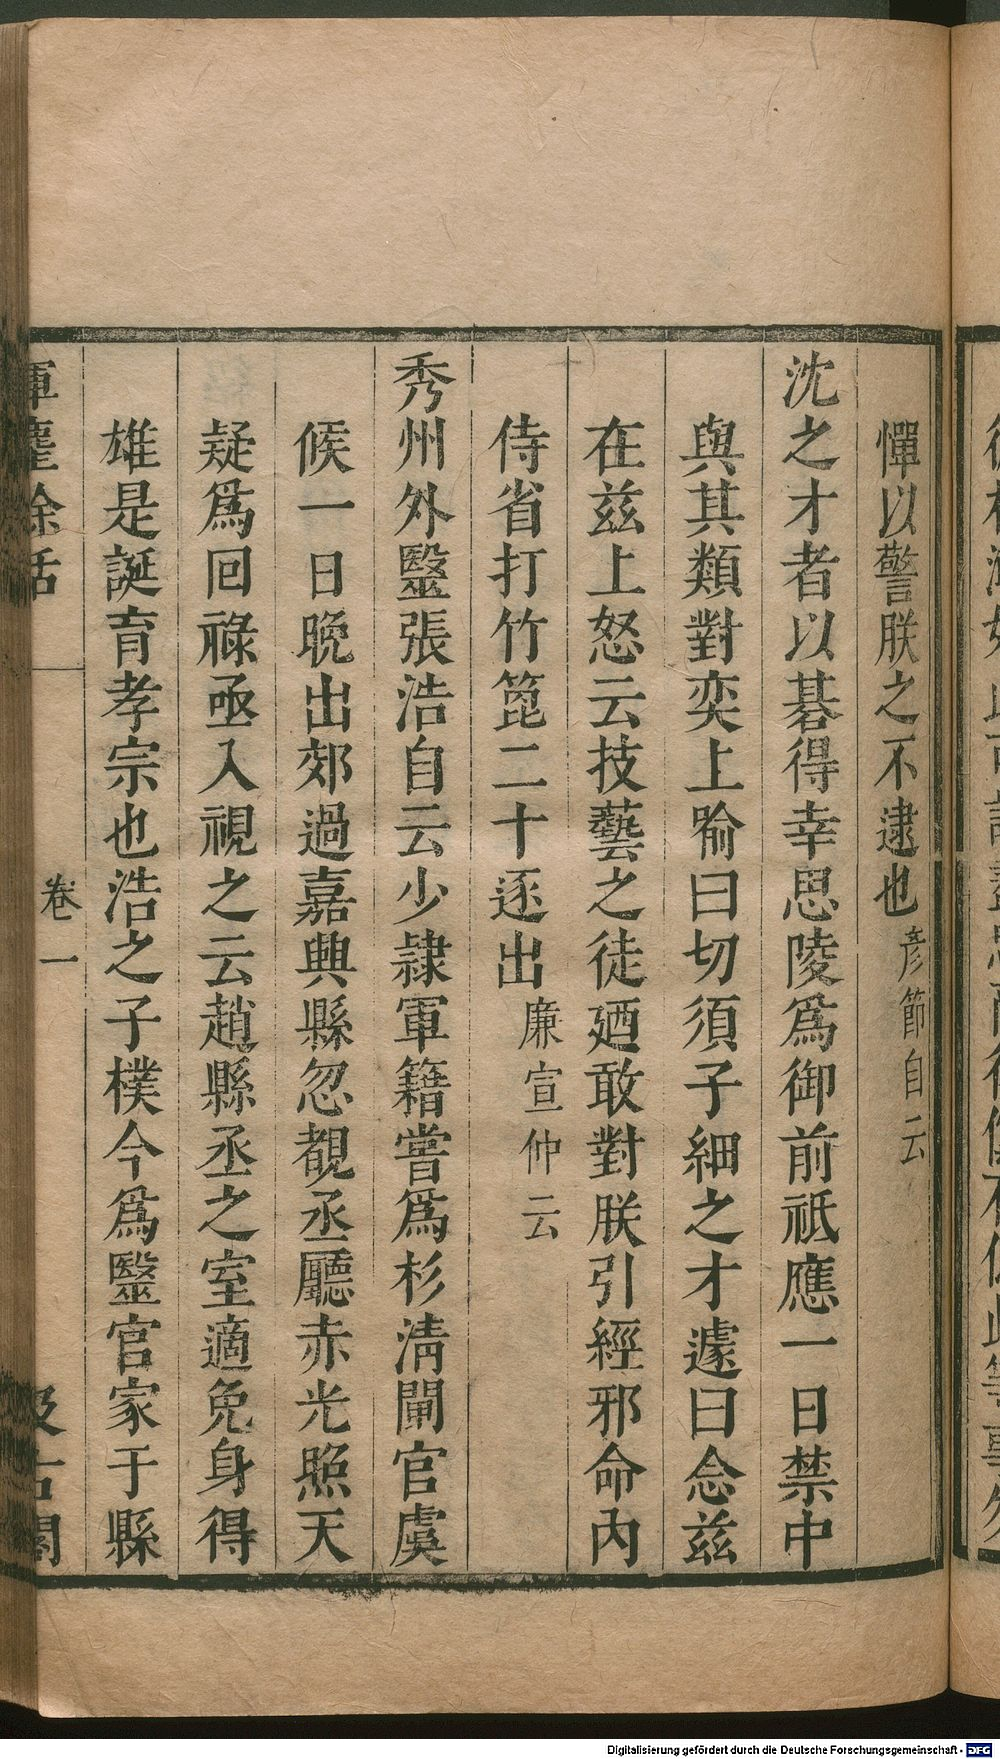 憚以警朕之不逮也彦節自云
沈之才者以碁得幸思陵爲御前祗應一日禁中
與其類對奕上喻曰切須子細之才遽曰念兹
在兹上怒云技藝之徒廼敢對朕引經邪命內
侍省打竹篦二十逐出廉宣仲云
秀州外毉張浩自云少隷軍籍嘗爲杉淸閘官虞
候一日晩出郊過嘉興縣忽覩丞廳赤光照天
疑爲回祿亟入視之云趙縣丞之室適免身得
雄是誕育孝宗也浩之子樸今爲毉官家于縣
余話 卷一
Digitalisierung gefördert durch die Deutsche Forschungsgemeinschaft - DFG